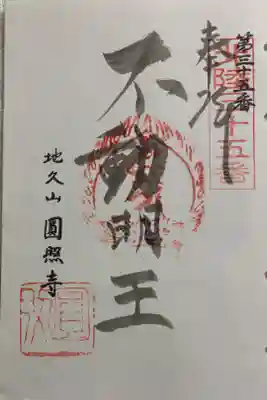 第三十五番
奉拝
不動明王
地久山 圓照寺